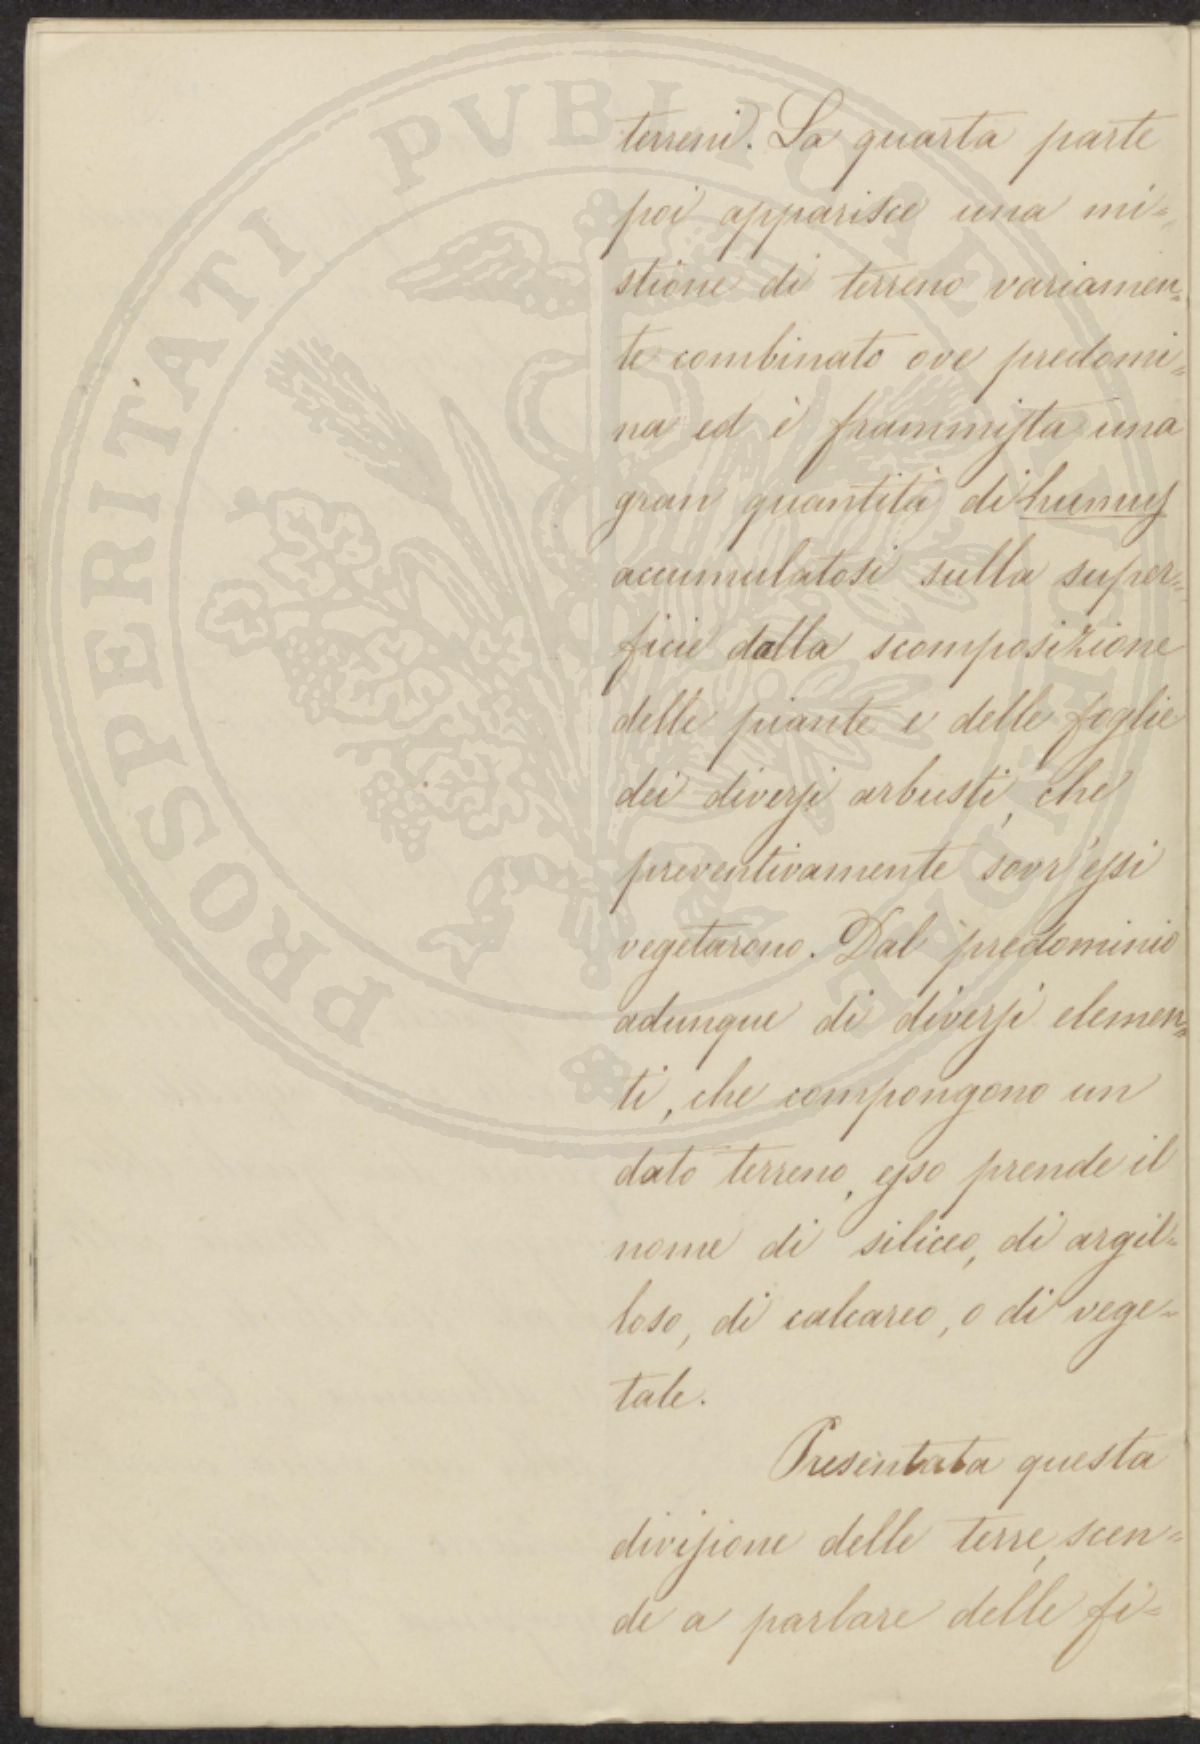 terreni. La quarta parte
poi apparisce una mi=
stione di terreno variamen=
te combinato ove predomi=
na ed è frammista una
gran quantità di humus
accumulatosi sulla super=
ficie dalla scomposizione
delle piante e delle foglie
dei diversi arbusti, che
preventivamente sovr'essi
vegetarono. Dal predominio
adunque di diversi elemen=
ti, che compongono un
dato terreno, esso prende il
nome di siliceo, di argil=
loso, di calcareo, o di vege=
tale.
Presentata questa
divisione delle terre, scen=
de a parlare delle fi=
PROSPERITATI PVBLICAE AVGENDAE